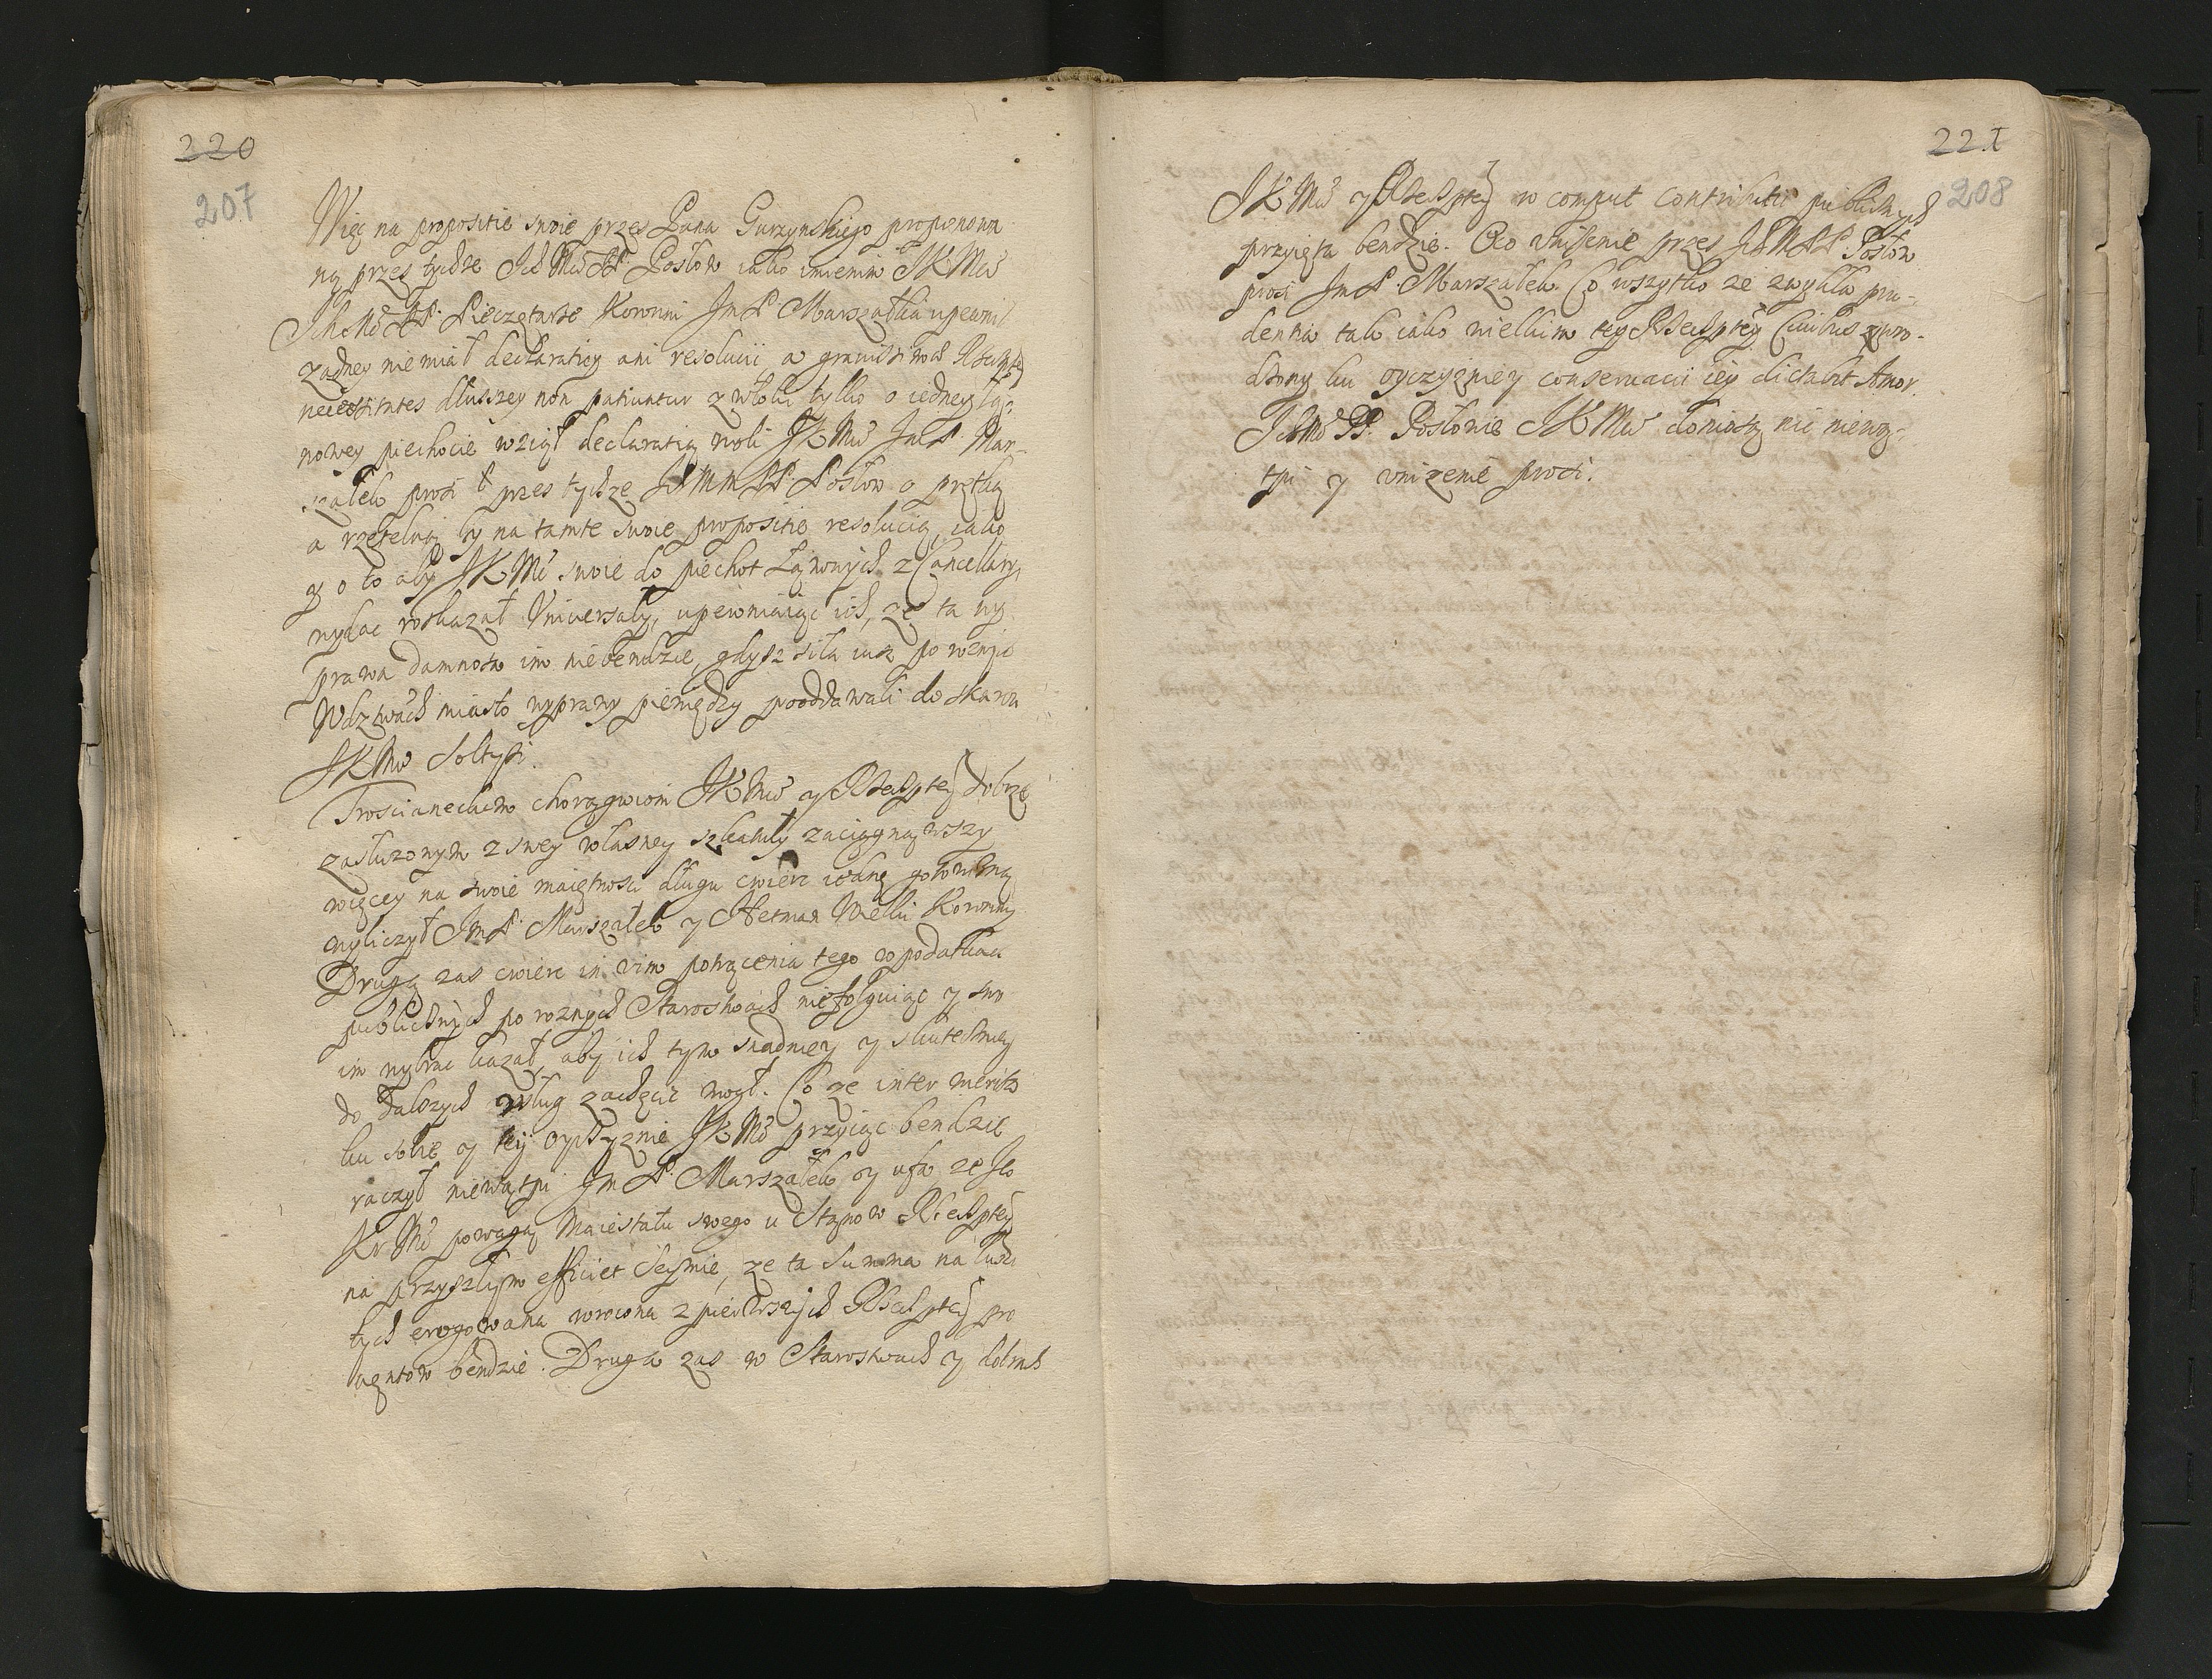 220
207
Więc na propositie swoie przes Pana Gurzynskiego proponowa
ną przes tychze Ich Mć PP. Posłow iako imieniem JKMci
Ich Mć PP. Pieczętarze Koronni JmP Marszałka upewnil
zadney niemiał declaratiey ani resolucii, a Rzeczpltey
necessitates dłuszey non patiuntur zwłoki tylko o iedney Ła-
nowey piechocie wziął declaratią woli JKMci JmP. Mar-
szałek prosi przes tychze IchMM PP. Posłow o prętką
a rzetelną na tamte swoie propositie resolucią, iako
y o to aby JKMć swoie do piechot Łanowych z Cancellariy
wydac roskazał Uniwersały, upewniaiąc ich, ze ta wy
prawa damnosa im niebendzie, gdysz siła iusz po roznych
Wdztwach miasto wyprawy pieniędzy pooddawali do skarbu
JKMci Soltysi.
Troscianeckim chorągwiom JKMci y Rzeczpltey dobrze
zasłuzonym z swey własney szkatuły zaciągnąwszy
więcey na swoie maiętnosci długu cwierc iedną gotowizną
wyliczył JmP. Marszałek y Hetman Wielki Koronny
Drugą zas cwierc in vim potrącenia tego w podatkach
publicznych po roznych Starostwach niefolguiąc y swo
im wybrac kazał, aby ich tym snadniey y skuteczniey
do dalszych usług zachęcic mogł. Co ze inter merita
ku sobie y tey oyczyznie JKMć przyiąc bendzie
raczył niewątpi JmP. Marszałek y ufa, ze Je
Kr Mć powagą Maiestatu swego u Stanow Rzeczpltey
na przyszłym efficiet Seymie, ze ta Summa na ludzi
tych erogowana wrocona z pierwszych Rzeczpltey pro
wentow bendzie. Druga zas w Starostwach y dobrach
221
208
JKMci y Rzeczpltey w comput contributii publicznych
przyięta bendzie. Oco unizenie przes IchMPP. Posłow
prosi JmP. Marszałek. Co wszytko ze zwykła pru-
dentia tak iako wielkim tey Rzeczpltey Civibus przyro-
dzony ku oyczyznie y conservacii iey dictabit Amor.
IchMć PP. Posłowie JKMci doniosą nic niewą-
tpi y unizenie prosi.